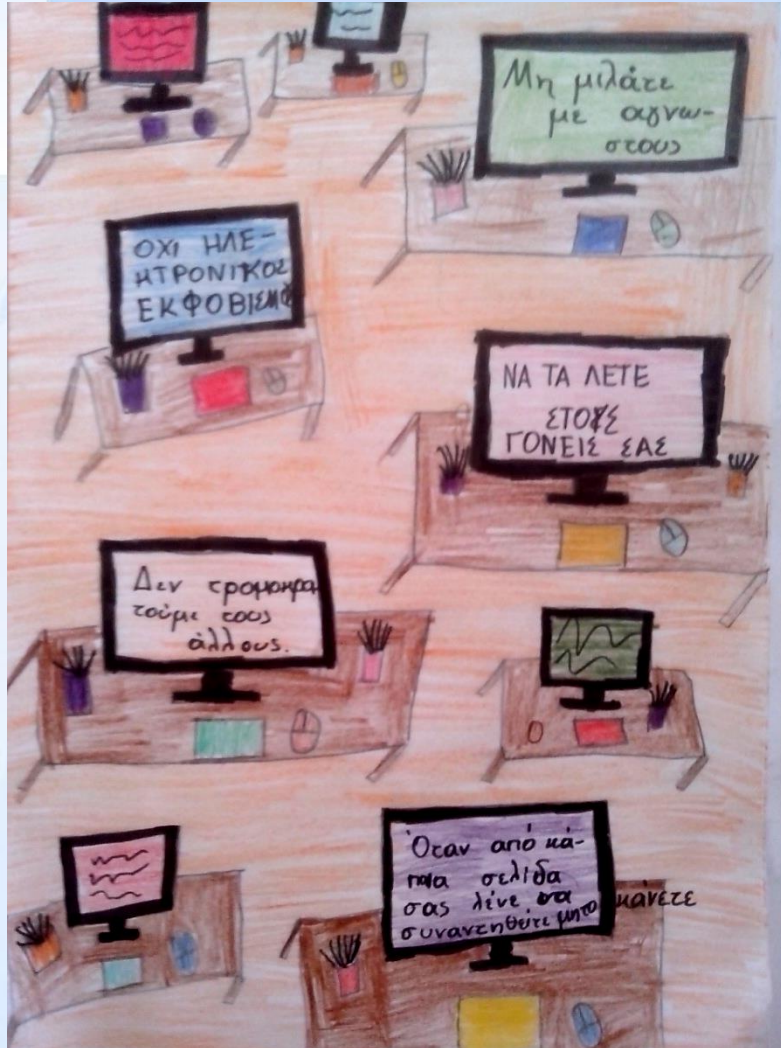 Μη μιλάτε
με αγνω-
στους
ΟΧΙ ΗΛΕ-
ΚΤΡΟΝΙΚΟΣ
ΕΚΦΟΒΙΣΜΟ
ΝΑ ΤΑ ΛΕΤΕ
ΣΤΟΥΣ
ΓΟΝΕΙΣ ΣΑΣ
Δεν τρομοκρα
τούμε τους
άλλους.
Όταν από κά-
ποια σελίδα
σας λένε να
συναντηθείτε μη το κάνετε